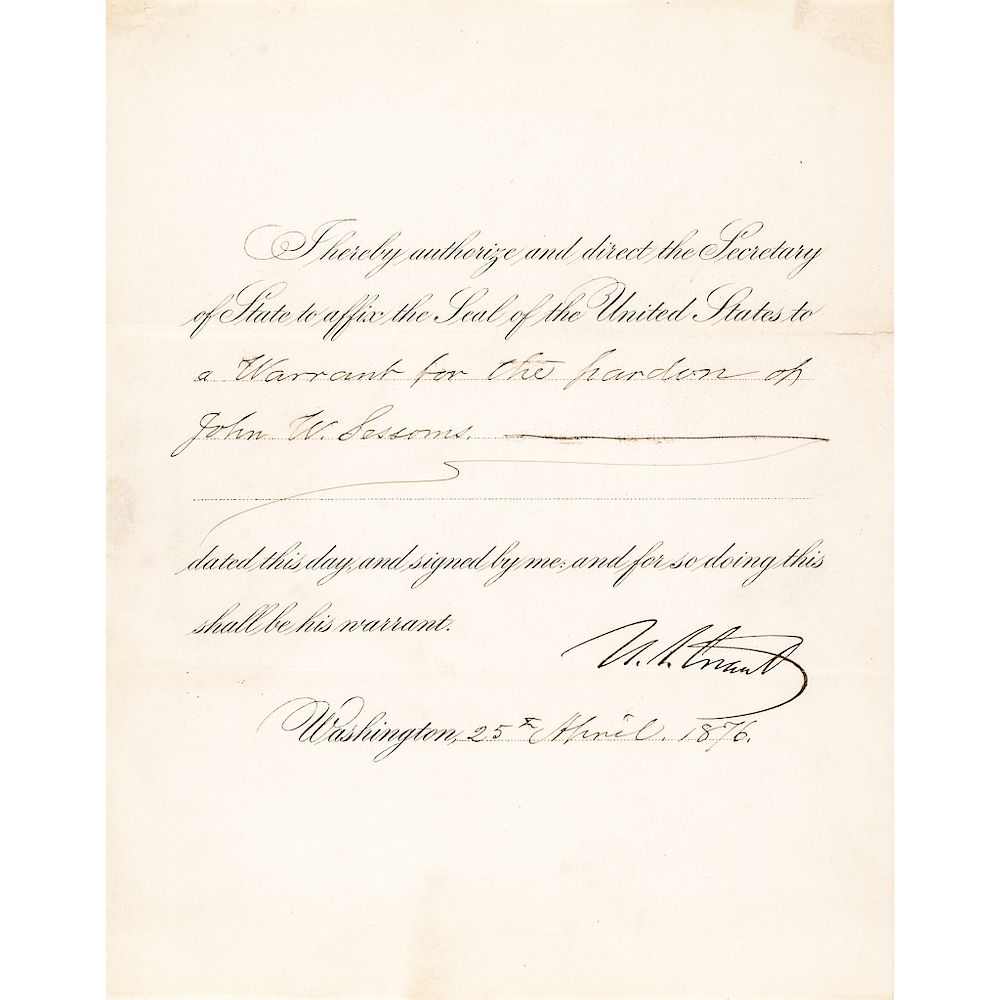 I hereby authorize and direct the Secretary
of State to affix the Seal of the United States to
a Warrant for the pardon of
John W. Sessoms.
dated this day, and signed by me: and for so doing this
shall be his warrant.
U. S. Grant
Washington, 25th April, 1876.